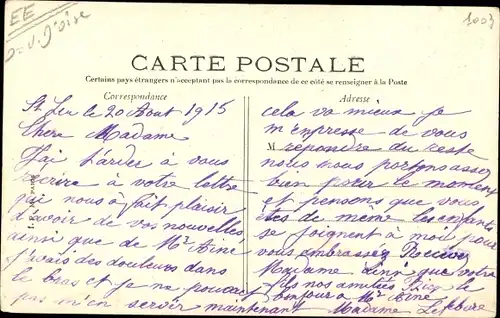 EE
S. V. d'Oise
1003
CARTE POSTALE
Certains pays étrangers n'acceptant pas la correspondance de ce côté se renseigner à la Poste
Correspondance
St Leu le 20 Aout 1915
Chere Madame
J'ai tarder à vous
ecrire à votre lettre
qui nous a fait plaisir
d'avoir de vos nouvelles
ainsi que de Mr Aîné
j'avais des douleurs dans
le bras et je ne pouvais
pas m'en servir maintenant
Adresse
cela va mieux je
m'empresse de vous
M
repondre du reste
nous nous portons assez
bien pour le moment
et pensons que vous
êtes de meme les enfants
se joignent à moi pour
vous embrassez Recevez
Madame ainsi que votre
fils nos amitiés Bcp
bonjour à Mr Aîné
Madame Lefebvre